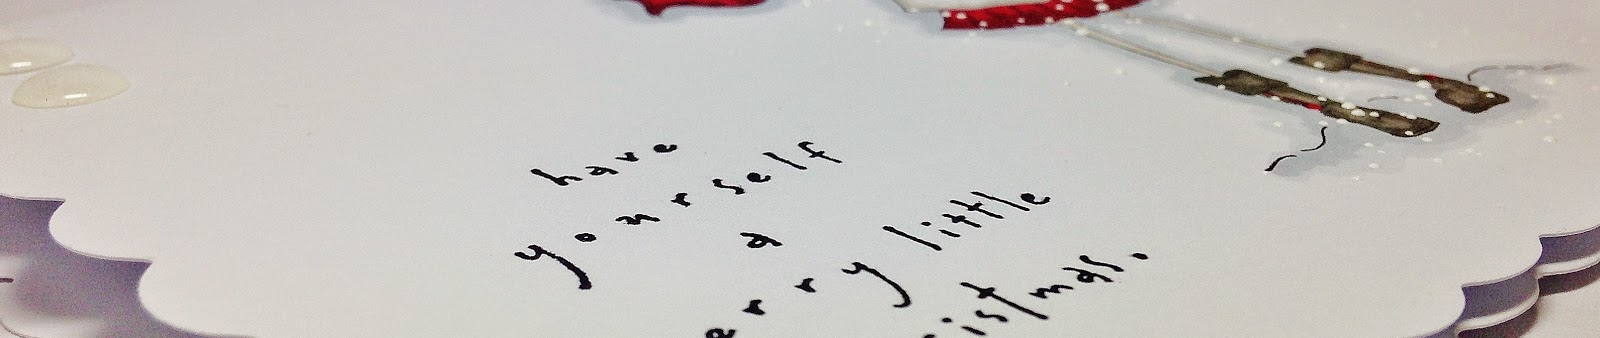 have
yourself
a
erry little
istmas.